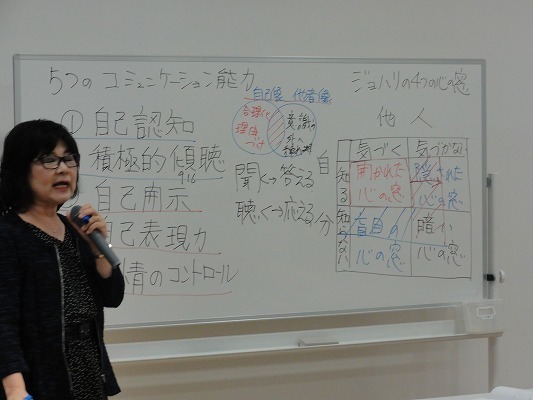 5つのコミュニケーション能力
① 自己認知
積極的傾聴
自己開示
己表現力
情のコントロール
自己像 他者像
合理化
理由
づけ
意識
聞く↔答える
聴く↔応える
ジョハリの4つの心の窓
他人
自分
気づく 気づかない
知る 開かれた心の窓 隠された心の窓
知らない 盲目の心の窓 暗い心の窓